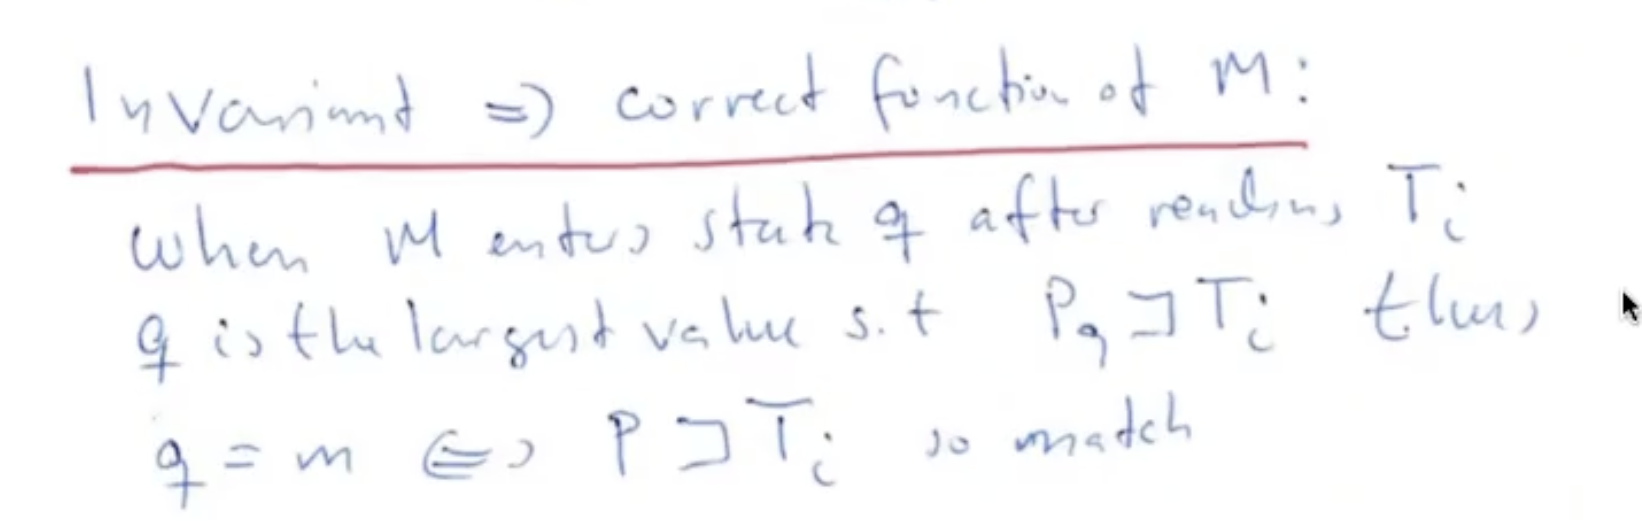 Invariant => correct function of M:
when M enters state q after reading T_i
q is the largest value s.t P_q ⊐ T_i thus
q = m <=> P ⊐ T_i so match